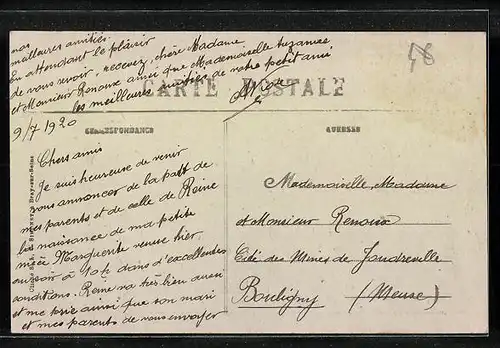 nos
meilleures amitiés.
En attendant le plaisir
de vous revoir, recevez, chère Madame
et Monsieur Renoux ainsi que Mademoiselle Suzanne
les meilleures amitiés de votre petit ami
9/7 1920
48
CARTE POSTALE
CORRESPONDANCE
ADRESSE
Chers amis
Je suis heureuse de venir
vous annoncer de la part de
mes parents et de celle de Reine
la naissance de ma petite
nièce Marguerite venue hier
au soir à 10h dans d'excellentes
conditions. Reine va très bien aussi
et me prie ainsi que son mari
et mes parents de vous envoyer
Mademoiselle, Madame
et Monsieur Renoux
Cité des Mines de Joudreville
Bouligny (Meuse)